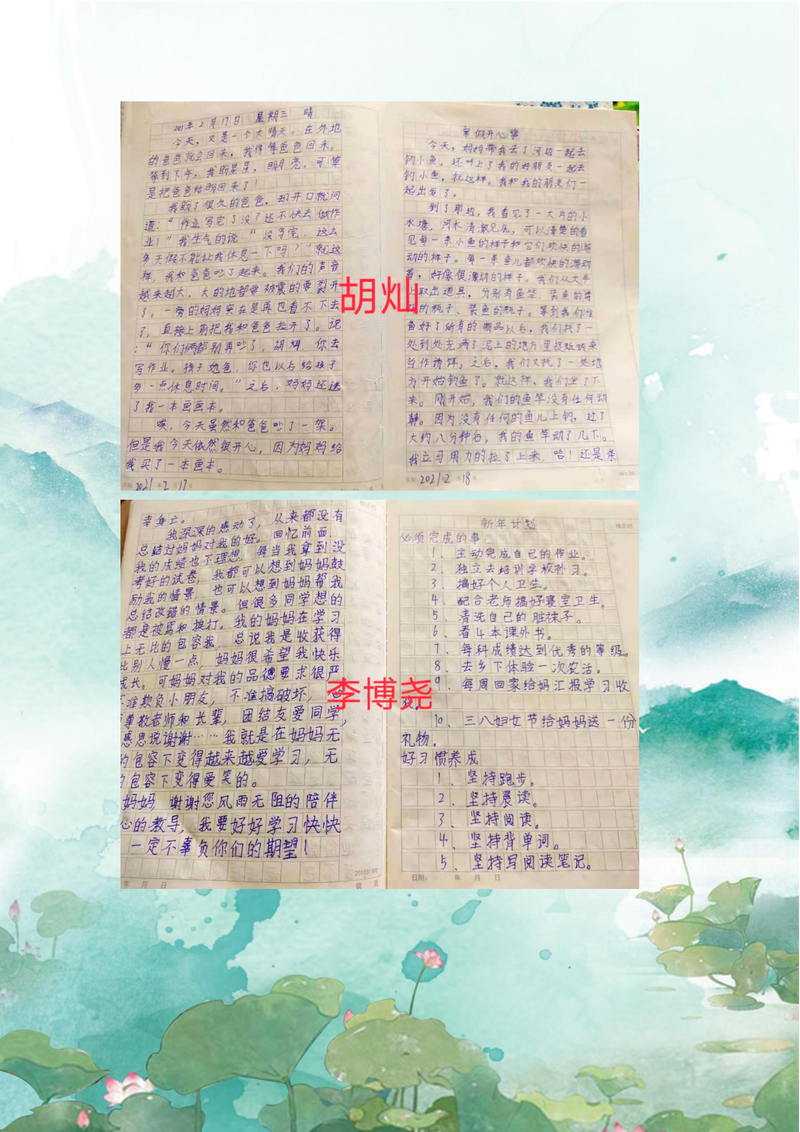 2021年2月17日 星期三 晴
今天，又是一个大晴天。在外地
的爸爸就会回来，我得等爸爸回来。
等到下午，我盼星星，盼月亮，可算
是把爸爸给盼回来了！
我盼了很久的爸爸，却开口就问
道：“作业写完了没？还不快去做作
业！”我生气的说“没写完，这大
冬天假不能让我休息一下吗？”就这
样，我和爸爸吵了起来。我们的声音
越来越大，大的地都要被震的要裂开
了。一旁的妈妈实在是再也看不下去
了，直接上前把我和爸爸拉开了。说
：“你们俩都别再吵了，胡灿，你去
写作业。孩子他爸，你也以后给孩子
多一点休息时间。”之后，妈妈还送
了我一本画画本。
唉，今天虽然和爸爸吵了一架。
但是我今天依然很开心，因为妈妈给
我买了一本画本。
2021 2 17
寒假开心事
今天，妈妈带我去了河边一起去
钓小鱼，还叫上了我的好朋友一起去
钓小鱼，就这样，我和我的朋友们一
起出发了。
到了那边，我看见了一大片的小
水塘，河水清澈见底，可以清楚的看
见每一条小鱼的样子和它们欢快的游
动的样子。每一条鱼儿都欢快的游动
着，好像很激动的样子。我们从大
上取出道具，分别有鱼竿、装鱼的
的瓶子、装鱼的瓶子。等到我们准
备好了所有的物品以后，我们找了一
处到处充满了泥土的地方里挖蚯蚓来
当作诱饵。之后，我们又找了一处地
方开始钓鱼了。就这样，我们坐了下
来。刚开始，我们的鱼竿没有任何动
静。因为没有任何的鱼儿上钩，过了
大约八分钟后，我的鱼竿动了几下。
我立马用力的拉了上来，哈！还是条
2021 2 18
胡灿
我深深的感动了，从来都没有
总结过妈妈对我的好。回忆前面，
我的成绩也不理想，每当我拿到没
考好的试卷，我都可以想到妈妈鼓
励我的情景，也可以想到妈妈帮我
总结改错的情景。但很多同学想的
都是被骂和挨打。我的妈妈在学习
上无比的包容我，总说我是收获得
比别人慢一点，妈妈很希望我快乐
成长。可妈妈对我的品德要求很严
准欺负小朋友，不准搞破坏，
尊敬老师和长辈，团结友爱同学，
感恩说谢谢……我就是在妈妈无
的包容下变得越来越爱学习，无
的包容下变得爱笑的。
妈妈，谢谢您风雨无阻的陪伴
心的教导，我要好好学习快快
一定不辜负你们的期望！
年 月 日
新年计划
必须完成的事
1、主动完成自己的作业。
2、独立去培训学校补习。
3、搞好个人卫生。
4、配合老师搞好寝室卫生。
5、清洗自己的脏袜子。
6、看4本课外书。
7、每科成绩达到优秀的等级。
8、去乡下体验一次农活。
9、每周回家给妈汇报学习收
获。
10、三八妇女节给妈妈送一份
礼物。
好习惯养成
1、坚持跑步。
2、坚持晨读。
3、坚持阅读。
4、坚持背单词。
5、坚持写阅读笔记。
日期： 年 月 日
李博尧